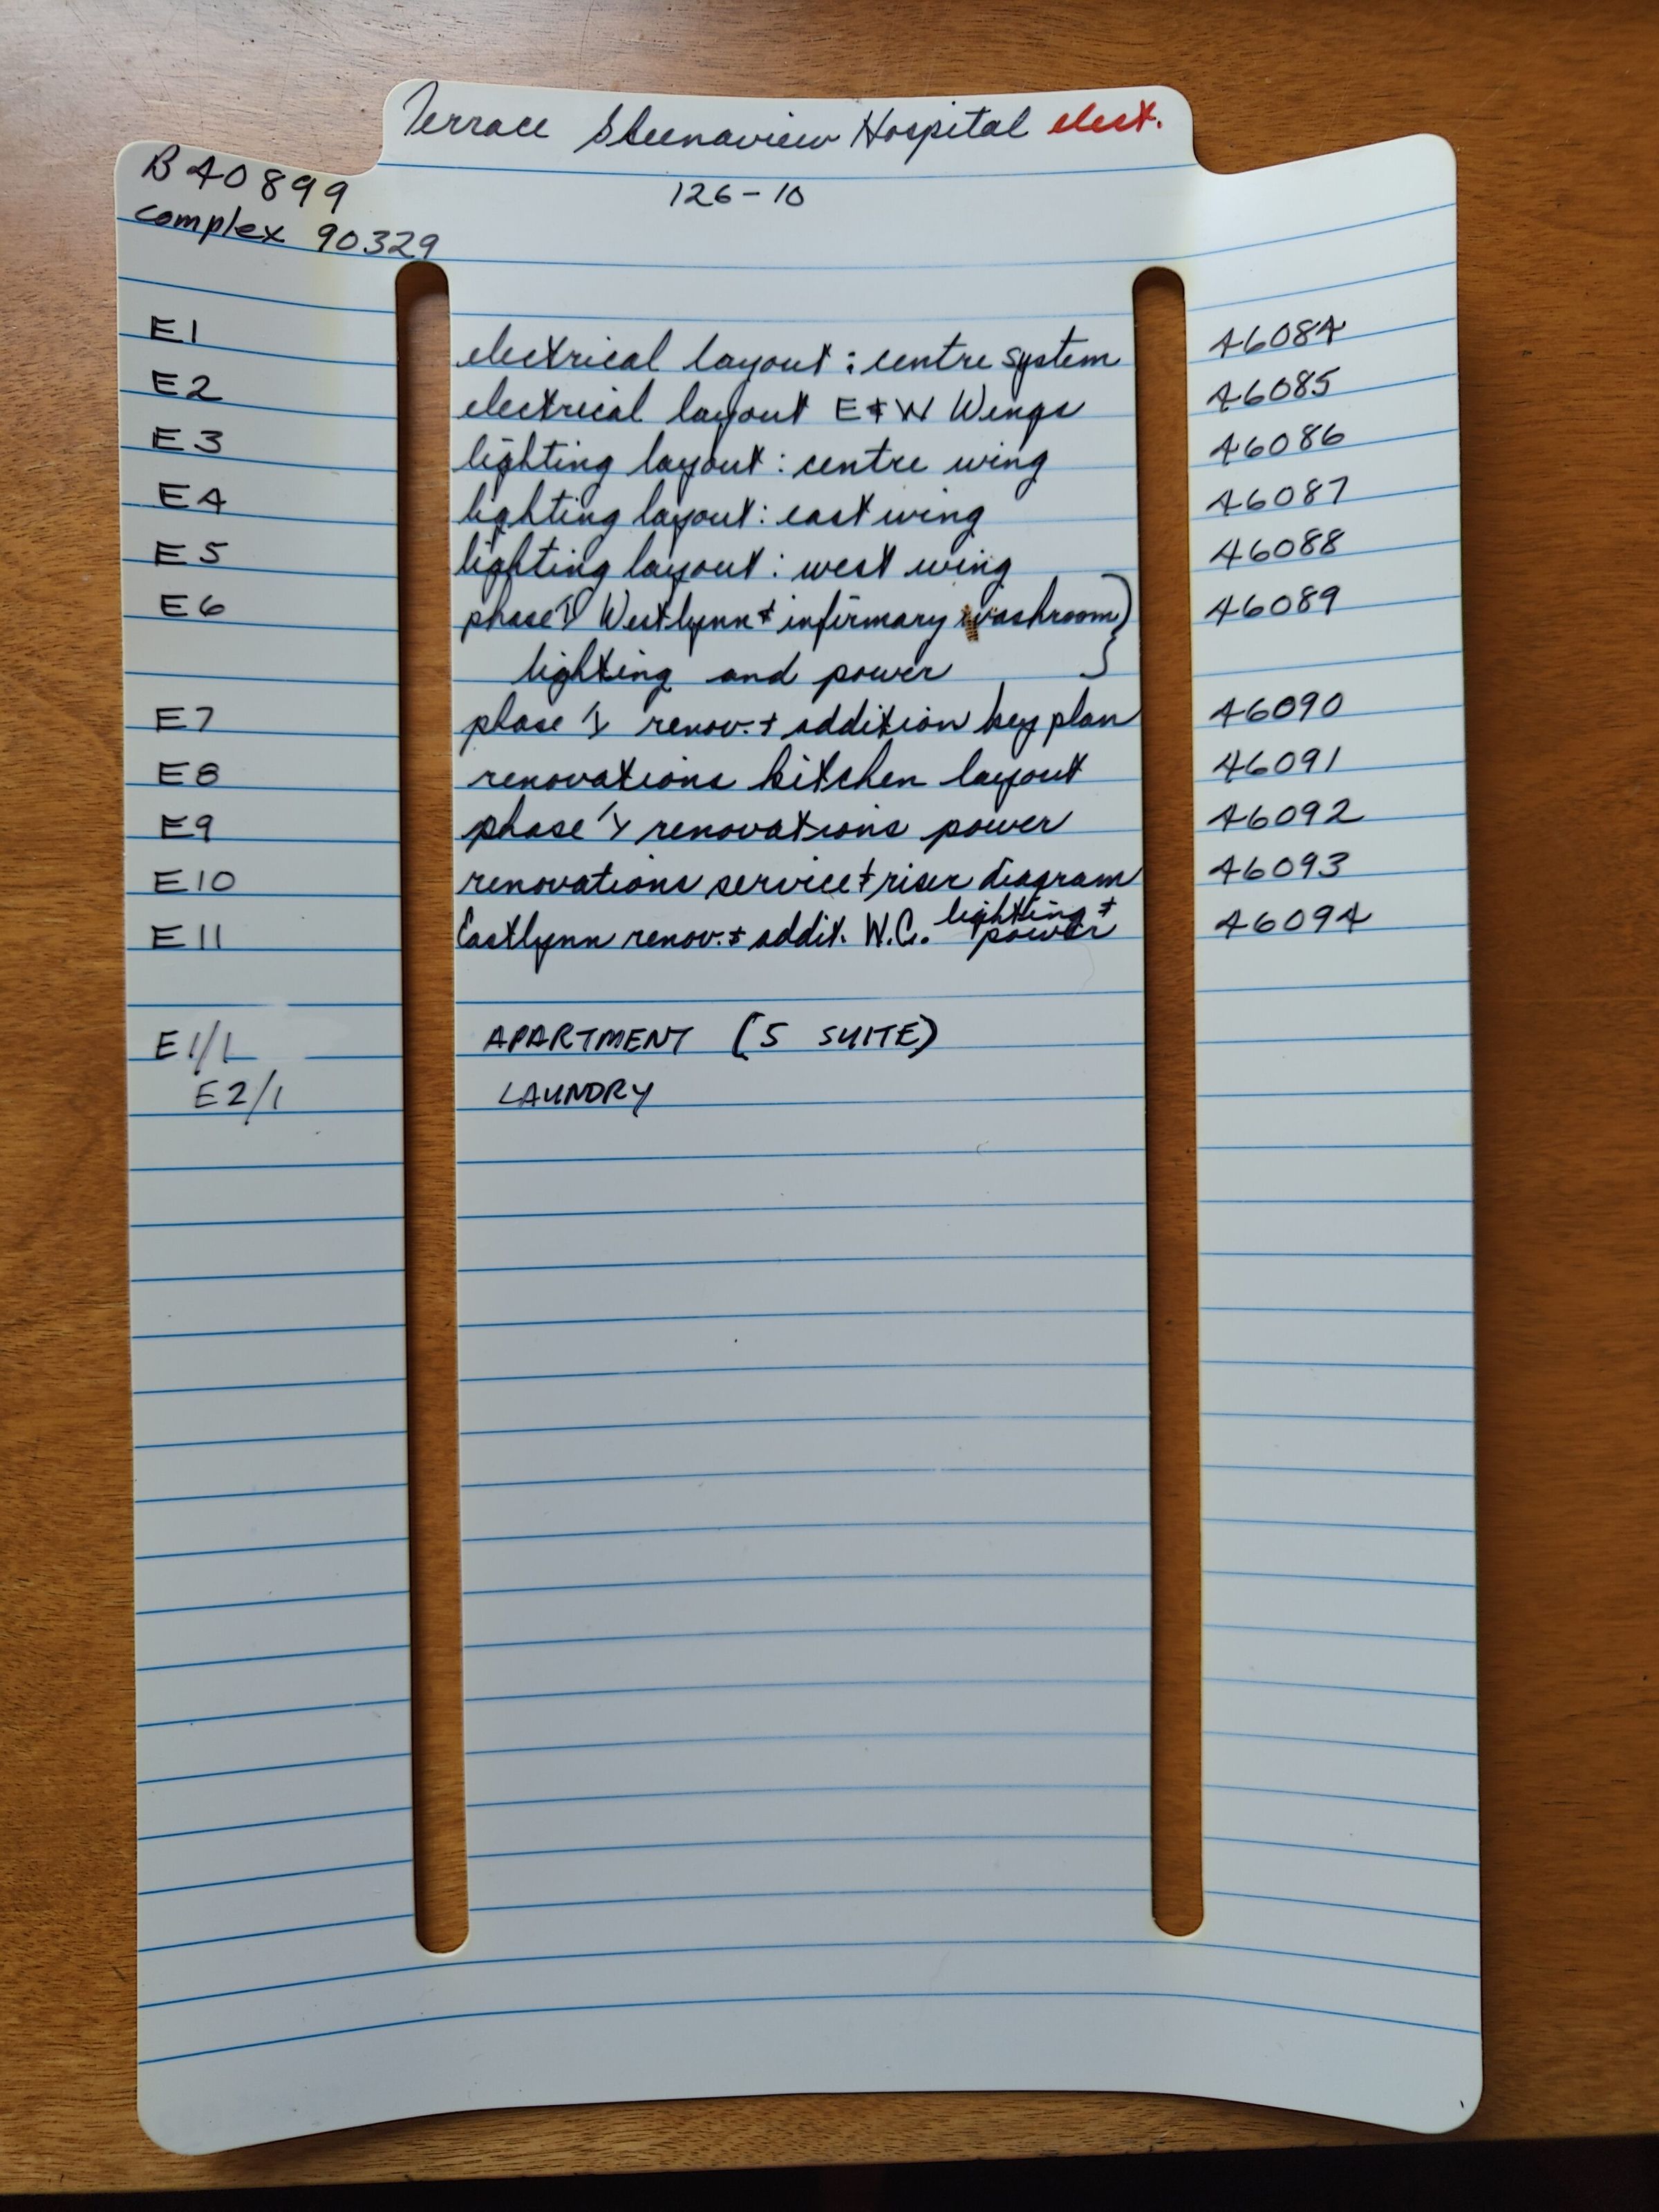 Terrace Skeenaview Hospital elect.
B40899
126-10
complex 90329
E1 electrical layout : centre system 46084
E2 electrical layout E & W Wings 46085
E3 lighting layout : centre wing 46086
E4 lighting layout : east wing 46087
E5 lighting layout : west wing 46088
E6 phase IV Westlynn & infirmary washroom } 46089
lighting and power
E7 phase renov. & addition key plan 46090
E8 renovations kitchen layout 46091
E9 phase renovations power 46092
E10 renovations service & riser diagram 46093
E11 Eastlynn renov. & addit. W.C. lighting & power 46094
E1/1 APARTMENT (5 SUITE)
E2/1 LAUNDRY